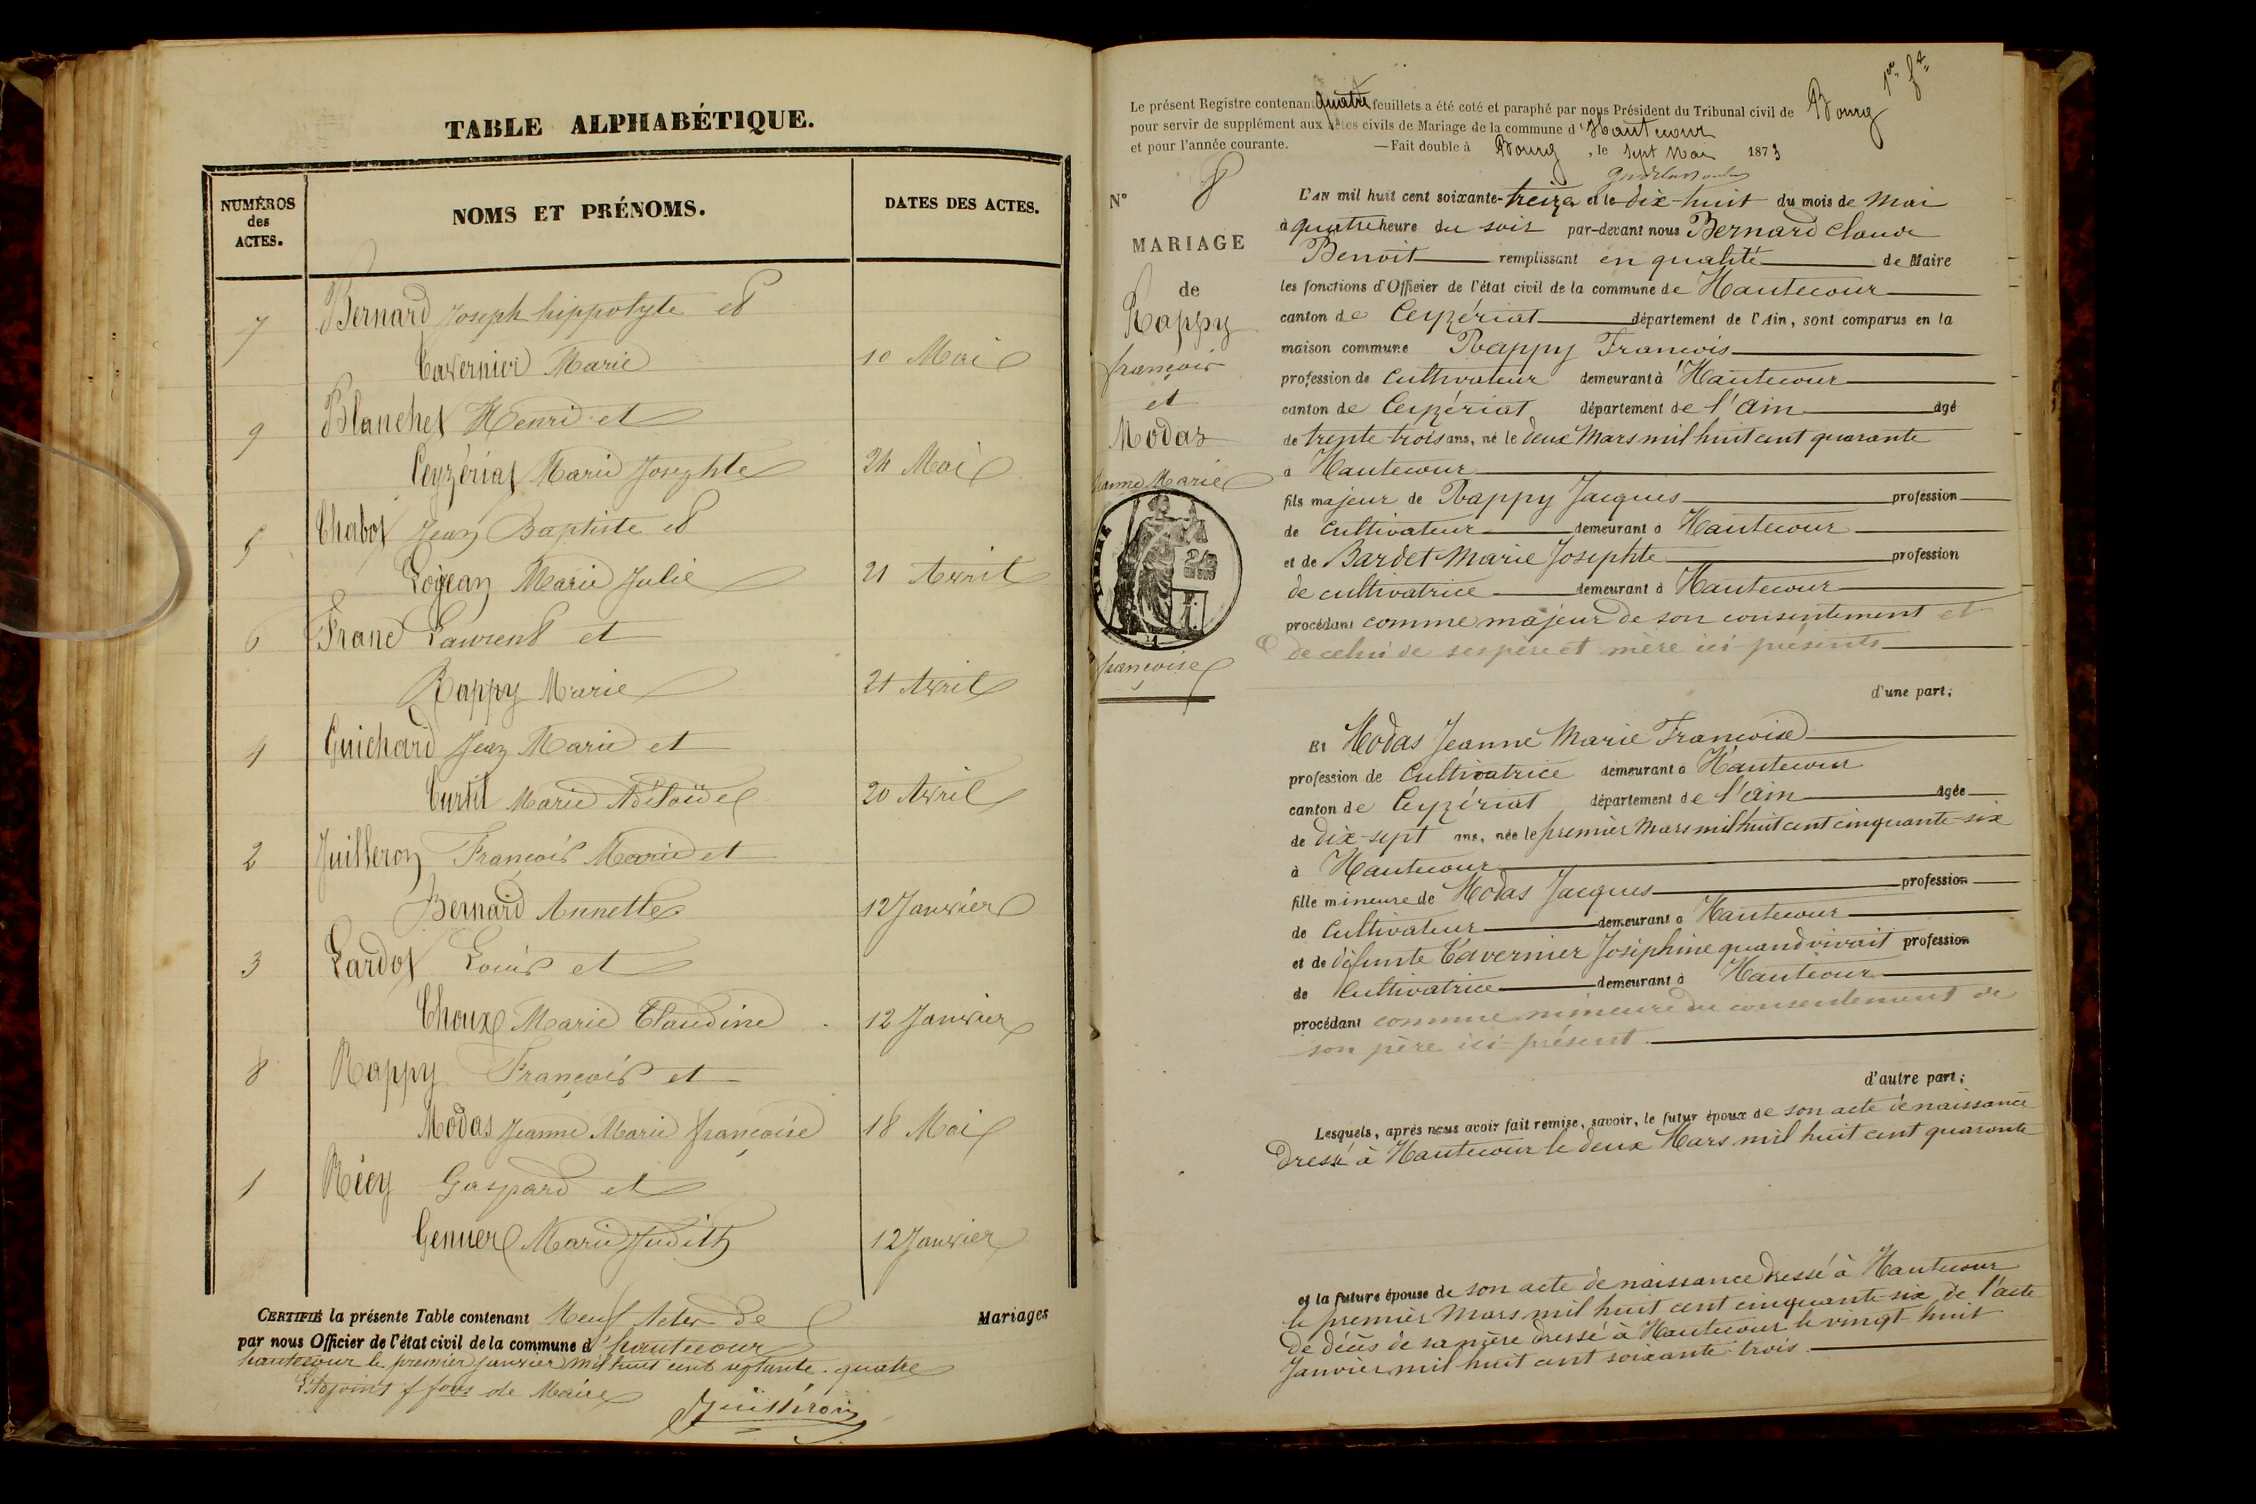 TABLE ALPHABÉTIQUE.
NUMÉROS
des
ACTES.
NOMS ET PRÉNOMS.
DATES DES ACTES.
7 Bernard Joseph hippolyte et
Tavernier Marie 10 Mai
9 Blanchet Henri et
Ceyzériat Marie Josephte 24 Mai
5 Chabot Jean Baptiste et
Logean Marie Julie 21 Avril
6 Franc Laurent et
Rappy Marie 21 Avril
4 Guichard Jean Marie et
Curtil Marie Adélaïde 20 Avril
2 Juilleron François Marie et
Bernard Annette 12 Janvier
3 Lardot Louis et
Choux Marie Claudine 12 Janvier
8 Rappy François et
Modas Jeanne Marie françoise 18 Mai
1 Récy Gaspard et
Marie Judith 12 Janvier
CERTIFIÉ la présente Table contenant Neuf Actes de Mariages
par nous Officier de l'état civil de la commune d'hautecour
hautecour le premier janvier mil huit cent septante-quatre
L'Adjoint f fons de Maire
Juilléron
1er ft
Le présent Registre contenant quatre feuillets a été coté et paraphé par nous Président du Tribunal civil de Bourg
pour servir de supplément aux actes civils de Mariage de la commune d'Hautecour
et pour l'année courante. — Fait double à Bourg, le sept Mai 1873
N° 8
MARIAGE
de
Rappy
françois
et
Modas
Jeanne Marie
françoise
L'AN mil huit cent soixante-treize et le dix-huit du mois de Mai
à quatre heure du soir par-devant nous Bernard Claude
Benoit remplissant en qualité de Maire
les fonctions d'Officier de l'état civil de la commune de Hautecour
canton de Ceyzériat département de l'Ain, sont comparus en la
maison commune Rappy Francois
profession de Cultivateur demeurant à Hautecour
canton de Ceyzériat département de l'Ain âgé
de trente trois ans, né le deux Mars mil huit cent quarante
à Hautecour
fils majeur de Rappy Jacques profession
de Cultivateur demeurant à Hautecour
et de Bardet Marie Josephte profession
de cultivatrice demeurant à Hautecour
procédant comme majeur de son consentement et
de celui de ses père et mère ici présents
d'une part;
Et Modas Jeanne Marie Francoise
profession de Cultivatrice demeurant à Hautecour
canton de Ceyzériat département de l'Ain âgée
de dix-sept ans, née le premier Mars mil huit cent cinquante-six
à Hautecour
fille mineure de Modas Jacques profession
de Cultivateur demeurant à Hautecour
et de défunte Tavernier Joséphine quand vivait profession
de Cultivatrice demeurant à Hautecour
procédant comme mineure du consentement de
son père ici présent
d'autre part;
Lesquels, après nous avoir fait remise, savoir, le futur époux de son acte de naissance
dressé à Hautecour le deux Mars mil huit cent quarante
et la future épouse de son acte de naissance dressé à Hautecour
le premier Mars mil huit cent cinquante-six, de l'acte
de décès de sa mère dressé à Hautecour le vingt-huit
Janvier mil huit cent soixante-trois.